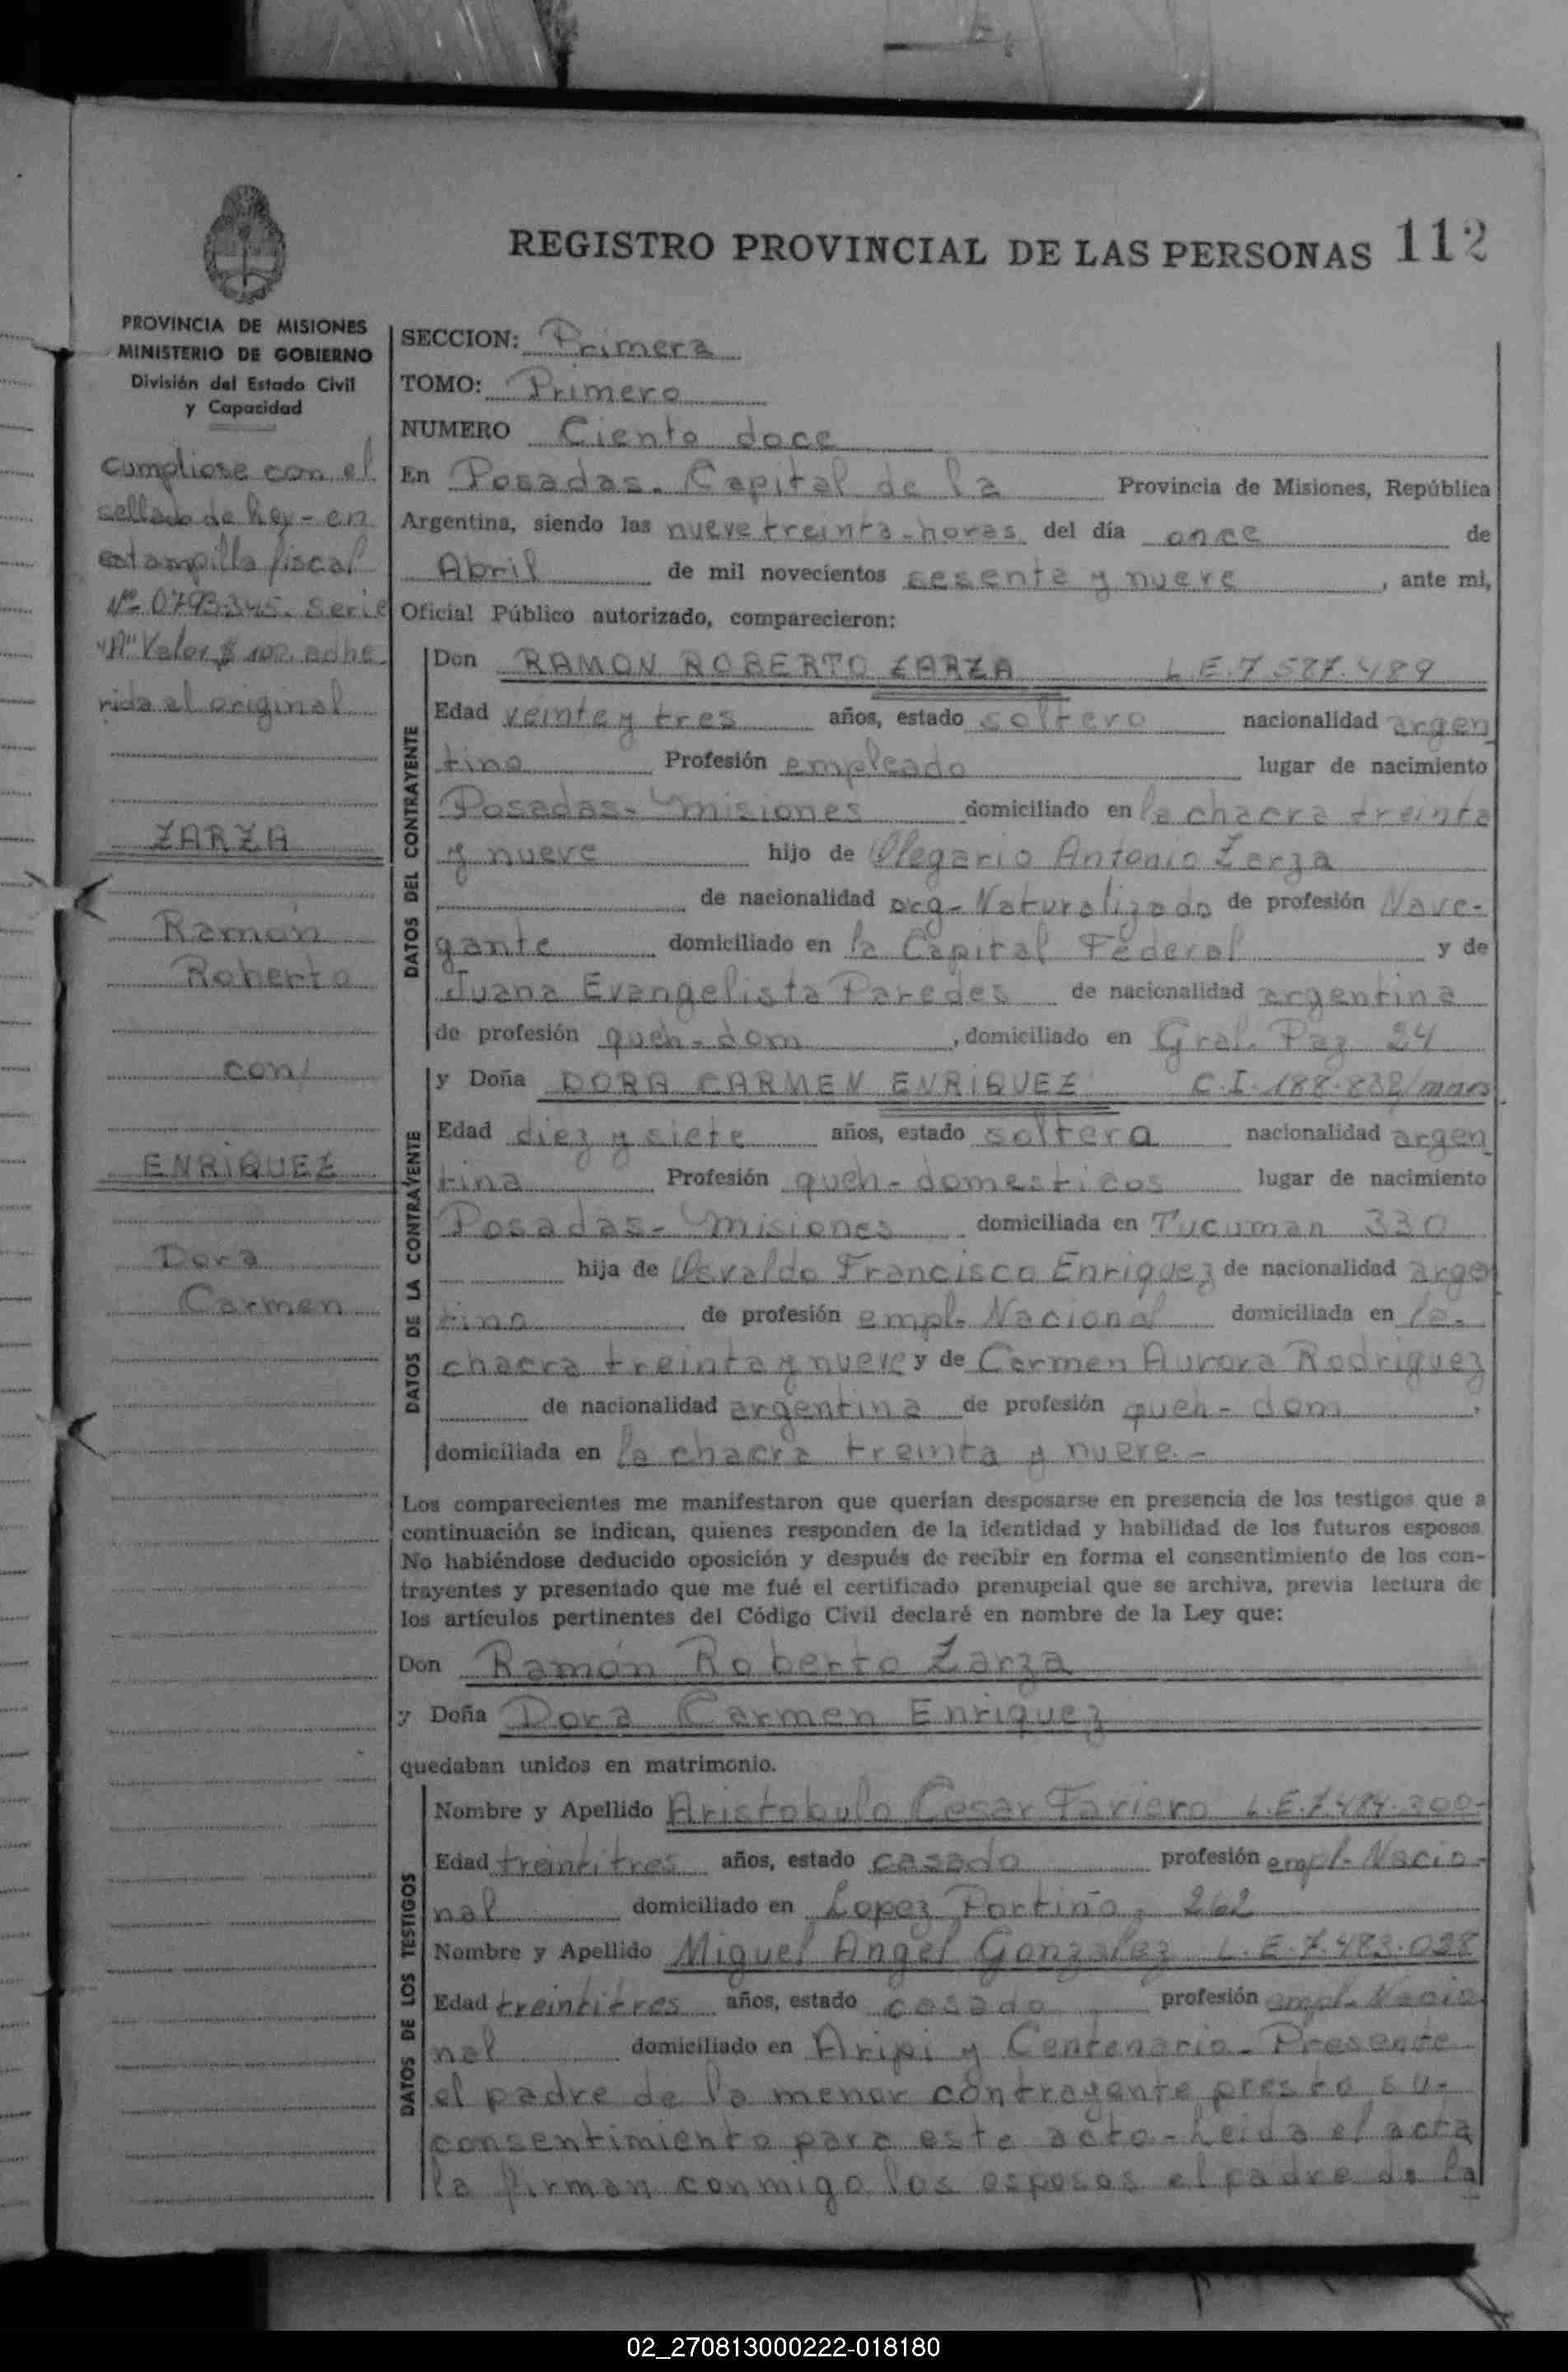 REGISTRO PROVINCIAL DE LAS PERSONAS 112
PROVINCIA DE MISIONES
MINISTERIO DE GOBIERNO
División del Estado Civil
y Capacidad
Cumpliose con el
sellado de ley - en
estampilla fiscal
Nº 0793345. Serie
"A" Valor $ 100 adhe
rida al original
ZARZA
Ramón
Roberto
con
ENRIQUEZ
Dora
Carmen
SECCION: Primera
TOMO: Primero
NUMERO Ciento doce
En Posadas. Capital de la Provincia de Misiones, República
Argentina, siendo las nueve treinta horas del día once de
Abril de mil novecientos sesenta y nueve, ante mi,
Oficial Público autorizado, comparecieron:
DATOS DEL CONTRAYENTE
Don RAMON ROBERTO ZARZA L.E. 7.587.489
Edad veinte y tres años, estado soltero nacionalidad argen
tino Profesión empleado lugar de nacimiento
Posadas - Misiones domiciliado en la chacra treinta
y nueve hijo de Olegario Antonio Zarza
de nacionalidad arg - Naturalizado de profesión Nave-
gante domiciliado en la Capital Federal y de
Juana Evangelista Paredes de nacionalidad argentina
de profesión queh - dom, domiciliado en Gral. Paz 24
DATOS DE LA CONTRAYENTE
y Doña DORA CARMEN ENRIQUEZ C.I. 188.832/mnes
Edad diez y siete años, estado soltera nacionalidad argen
tina Profesión queh - domesticos lugar de nacimiento
Posadas - Misiones domiciliada en Tucuman 330
hija de Osvaldo Francisco Enriquez de nacionalidad argen
tino de profesión empl. Nacional domiciliada en la
chacra treinta y nueve y de Carmen Aurora Rodriguez
de nacionalidad argentina de profesión queh - dom,
domiciliada en la chacra treinta y nueve.-
Los comparecientes me manifestaron que querían desposarse en presencia de los testigos que a
continuación se indican, quienes responden de la identidad y habilidad de los futuros esposos.
No habiéndose deducido oposición y después de recibir en forma el consentimiento de los con-
trayentes y presentado que me fué el certificado prenupcial que se archiva, previa lectura de
los artículos pertinentes del Código Civil declaré en nombre de la Ley que:
Don Ramón Roberto Zarza
y Doña Dora Carmen Enriquez
quedaban unidos en matrimonio.
DATOS DE LOS TESTIGOS
Nombre y Apellido Aristobulo Cesar Fariero L.E. 7.484.200-
Edad treintitres años, estado casado profesión empl. Nacio-
nal domiciliado en Lopez Portiño, 262
Nombre y Apellido Miguel Angel Gonzalez L.E. 7.483.038
Edad treintitres años, estado casado profesión empl. Nacio
nal domiciliado en Aripi y Centenario - Presente
el padre de la menor contrayente presto su
consentimiento para este acto - Leida el acta
la firman conmigo los esposos el padre de la
02_270813000222-018180